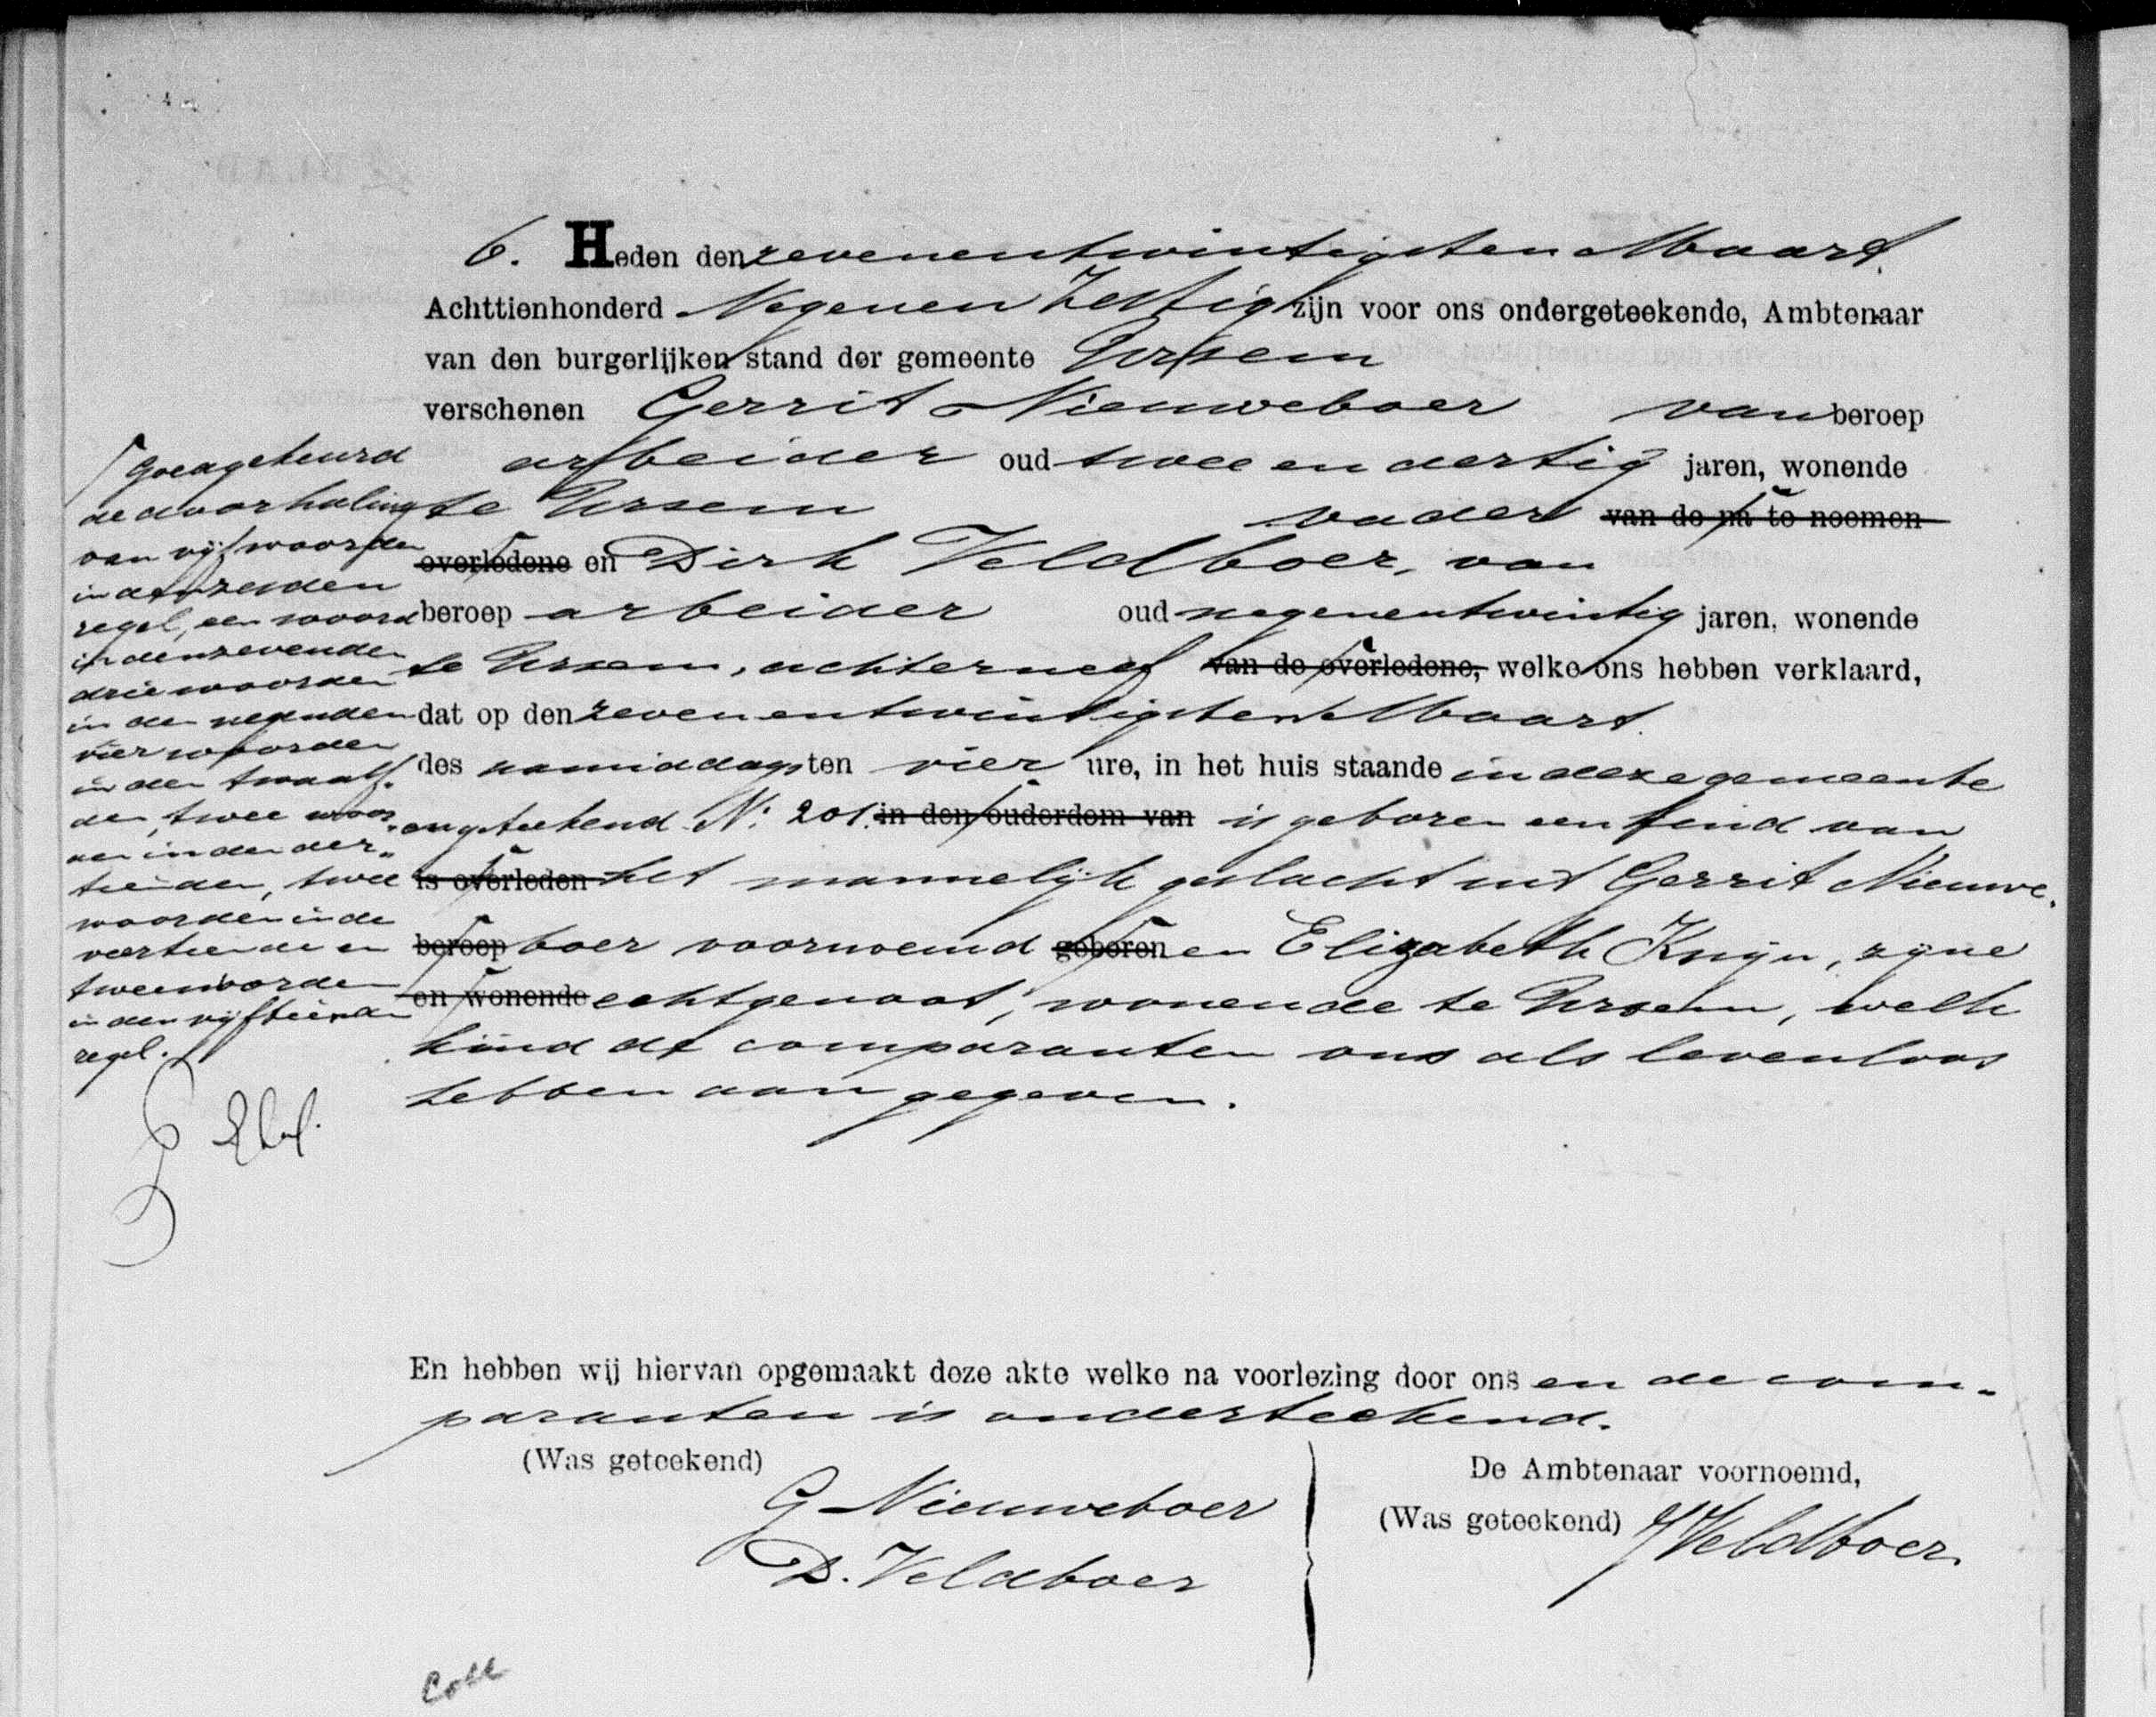 6. Heden den zevenentwintigsten Maart
Achttienhonderd Negenen Zestig zijn voor ons ondergeteekende, Ambtenaar
van den burgerlijken stand der gemeente Ursem
verschenen Gerrit Nieuweboer van beroep
arbeider oud twee en dertig jaren, wonende
te Ursem vader van de na te noemen
overledene en Dirk Veldboer, van
beroep arbeider oud negenentwintig jaren, wonende
te Ursem, achterneef van de overledene, welke ons hebben verklaard,
dat op den zevenentwintigsten Maart
des namiddags ten vier ure, in het huis staande in deze gemeente
ongeteekend No: 201. in den ouderdom van is geboren een kind van
is overleden het mannelijk geslacht uit Gerrit Nieuwe-
beroep boer voornoemd geboren en Elizabeth Knijn, zijne
en wonende echtgenoot, wonende te Ursem, welk
kind de comparanten ons als levenloos
hebben aangegeven.
Goedgekeurd
de doorhaling
van vijf woorden
in den zesden
regel, een woord
in den zevenden
drie woorden
in den negenden
vier woorden
in den twaalf-
den, twee woor-
den in den der-
tienden, twee
woorden in de
veertiende en
twee woorden
in den vijftienden
regel.
En hebben wij hiervan opgemaakt deze akte welke na voorlezing door ons en de com-
paranten is onderteekend.
(Was geteekend)
G Nieuweboer
D. Veldboer
De Ambtenaar voornoemd,
(Was geteekend) Veldboer
Coll